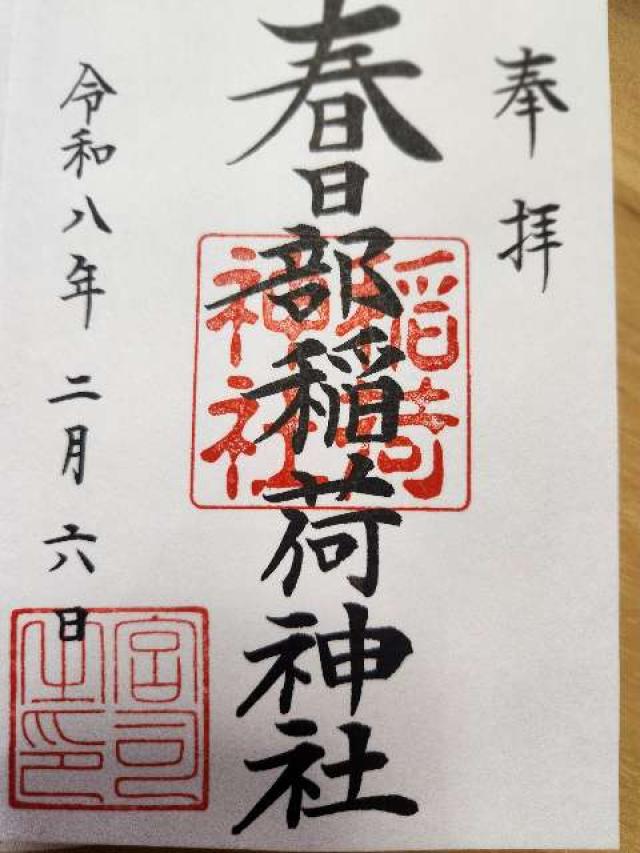 奉拝
春日部稲荷神社
稲荷神社
令和八年二月六日
宮司之印